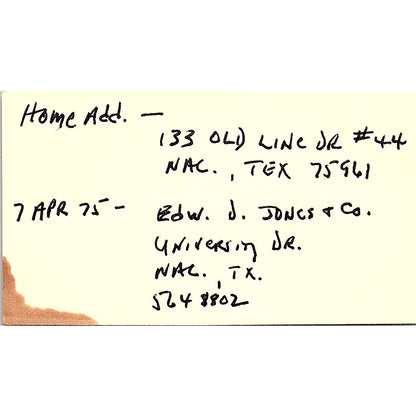 Home Add. —
133 OLD LINE DR #44
NAC., TEX 75961
7 APR 75 - Edw. D. JONES & Co.
University Dr.
NAC., TX.
564 8802